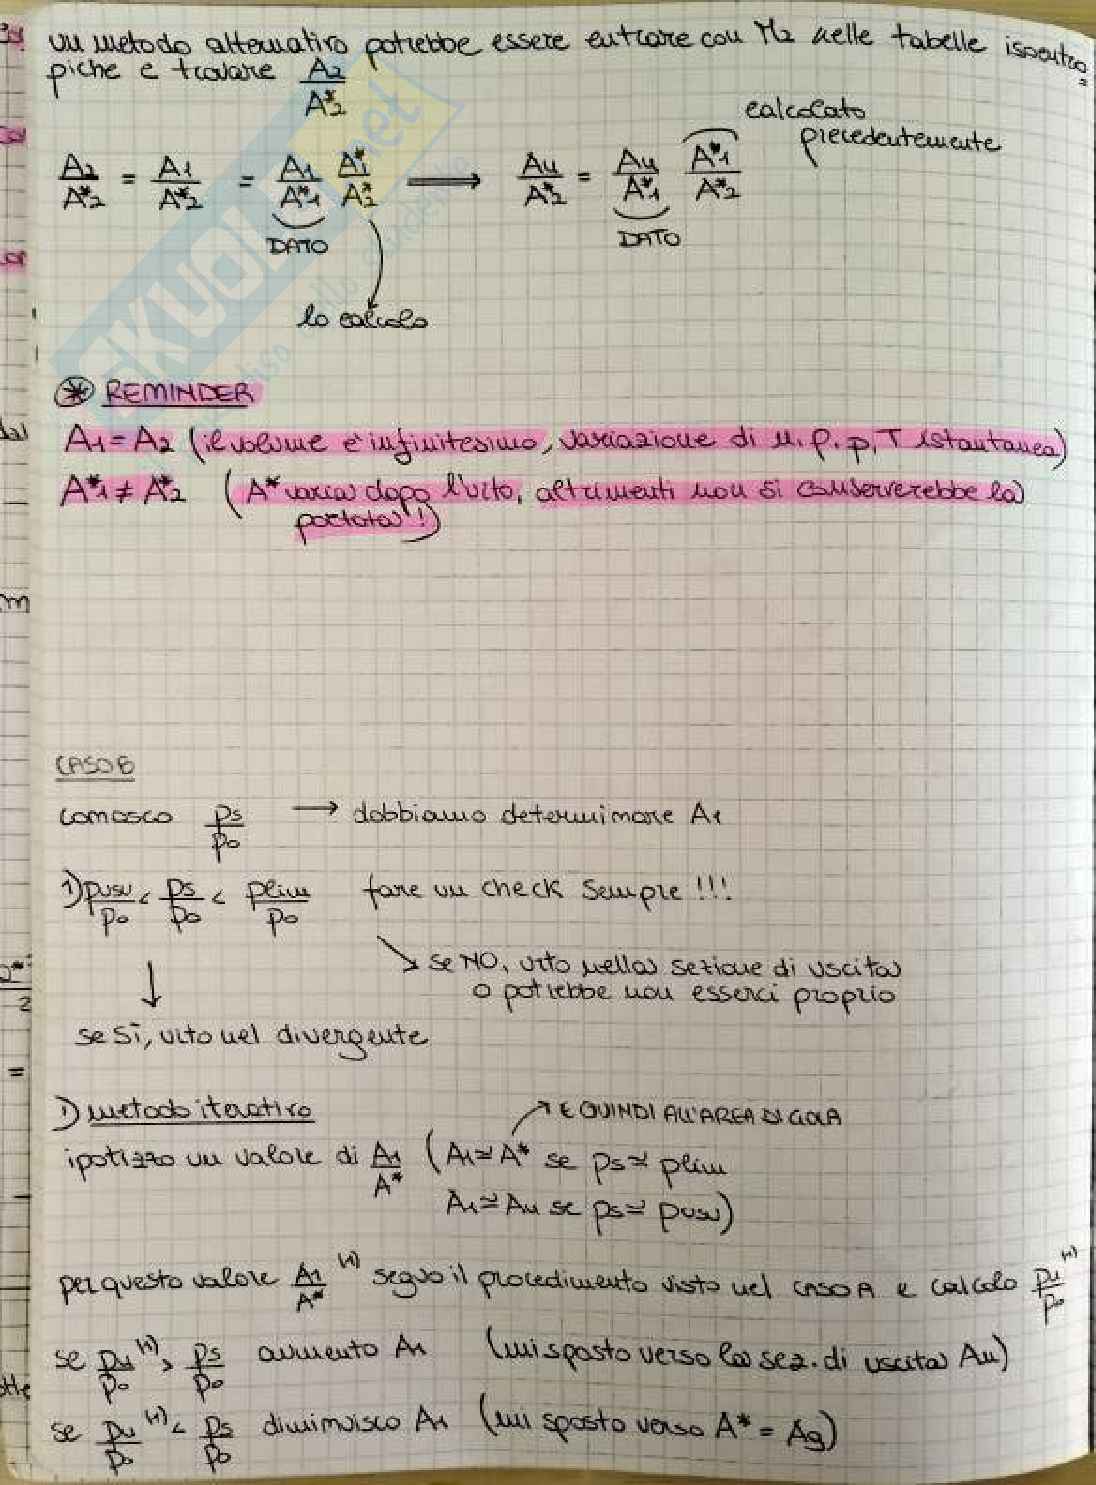 un metodo alternativo potrebbe essere entrare con M2 nelle tabelle isoentro
piche e trovare A2/A*2
calcolato
precedentemente
A2/A*2 = A1/A*2 = A1/A*1 A*1/A*2 ⟹ Au/A*2 = Au/A*1 A*1/A*2
DATO DATO
lo calcolo
SKUOLA.net
⊛ REMINDER
A1 = A2 (il volume è infinitesimo, variazione di u, ρ, p, T istantanea)
A*1 ≠ A*2 (A* varia dopo l'urto, altrimenti non si conserverebbe la
portata!)
CASO B
conosco ps/p0 → dobbiamo determinare A1
1) pusu/p0 < ps/p0 < plim/p0 fare un check sempre!!!
↘ se NO, urto nella sezione di uscita
o potrebbe non esserci proprio
↓
se Sì, urto nel divergente
1) metodo iterativo
↗ E QUINDI ALL'AREA DI GOLA
ipotizzo un valore di A1/A* (A1≃A* se ps≃plim
A1≃Au se ps≃pusu)
per questo valore A1/A* (1) seguo il procedimento visto nel CASO A e calcolo pu/p0 (1)
se pu/p0 (1) > ps/p0 aumento A1 (mi sposto verso la sez. di uscita Au)
se pu/p0 (1) < ps/p0 diminuisco A1 (mi sposto verso A* = Ag)